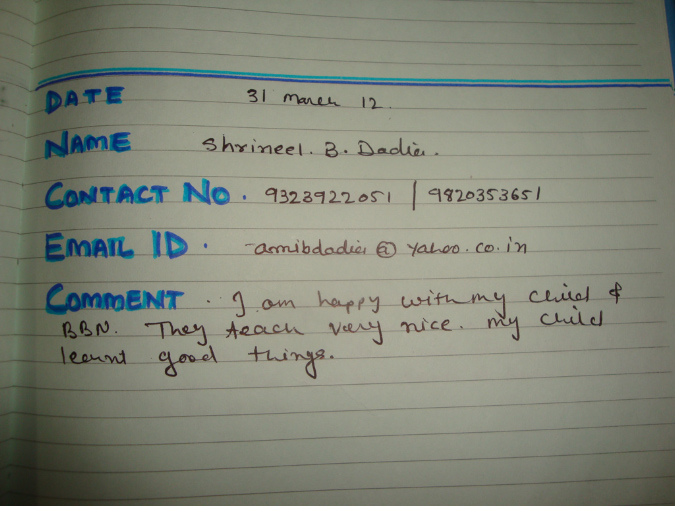 DATE 31 March 12.
NAME Shrineel. B. Dadia.
CONTACT NO. 9323922051 | 9820353651
EMAIL ID. amibdadia@yahoo.co.in
COMMENT. I am happy with my child &
BBN. They teach very nice. my child
learnt good things.